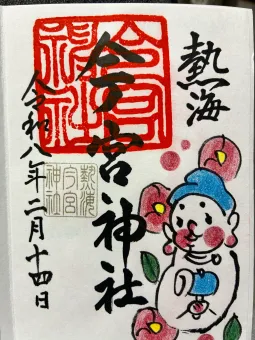 熱海
今宮神社
令和八年二月十四日
今宮神社
熱海
今宮
神社